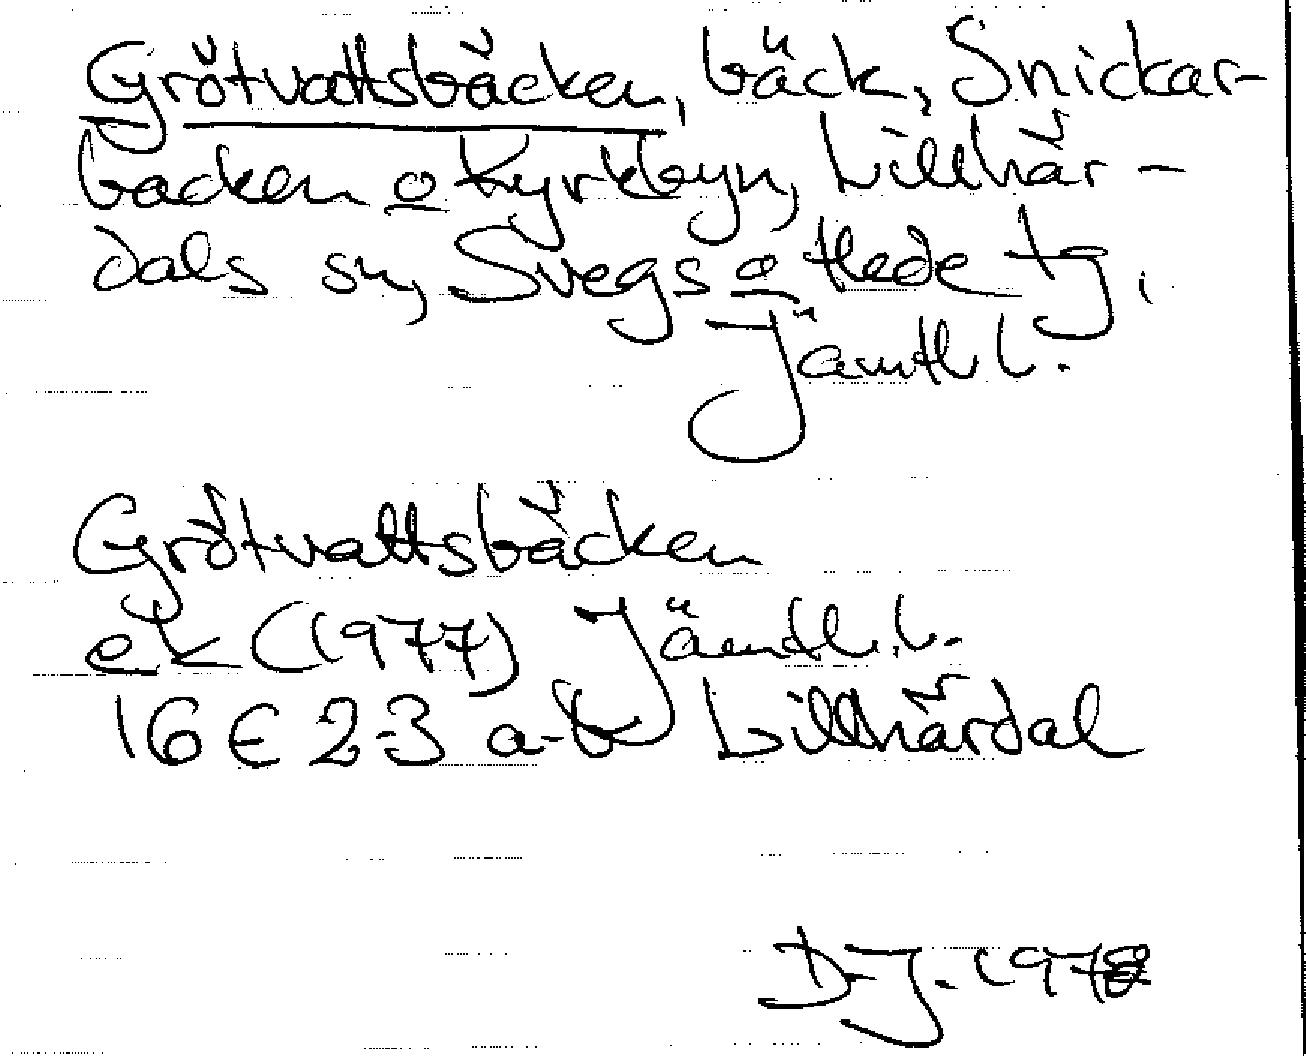 Grötvattsbäcken, bäck, Snickar-
backen o Kyrkbyn, Lillhär-
dals sn, Svegs o Hede tg,
Jämtl l.
Grötvattsbäcken
ek (1977) Jämtl. l.
16 E 2-3 a-b Lillhärdal
D.J. 1978